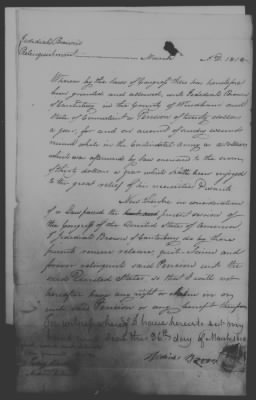 Jedediah Brown's
Relinquishment
March A.D. 1818
Whereas by the laws of Congress there has heretofore
been granted and allowed, unto Jedediah Brown
of Canterbury in the County of Windham and
State of Connecticut a Pension of twenty dollars
a year, for and on account of sundry wounds
received while in the Continental army a
which was afterwards by law encreased to the sum
of thirty dollars a year which hath been enjoyed
to the great relief of his necessities
Now therefore in consideration
of a Law passed the present session of
the Congress of the United States of America
I Jedediah Brown of Canterbury do by these
presents remise release quit-claim and
forever relinquish said Pension unto the
said United States so that I will not
hereafter have any right or claim in or
unto said Pension or any benefit therefrom
In witness whereof I have hereunto set my
hand and seal this 26th day of March 1818
Jedidiah Brown